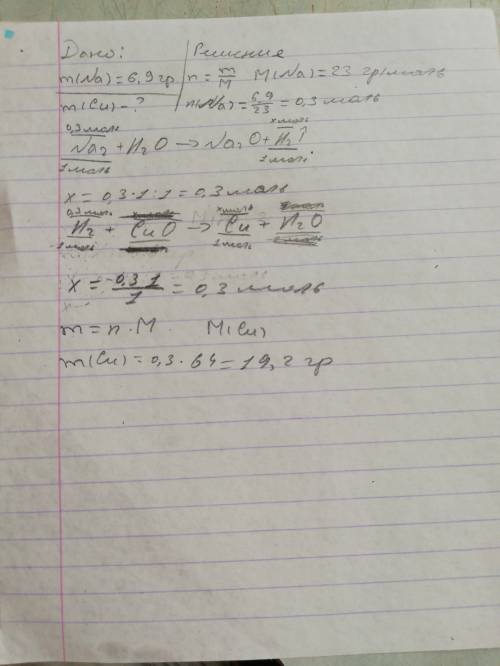 Дано: Решение
m(Na)=6,9 гр n=m/M M(Na)=23 гр/моль
m(Cu)-? n(Na)=6,9/23=0,3 моль
0,3 моль x моль
Na2+H2O→Na2O+H2↑
1 моль 1 моль
x=0,3·1:1=0,3 моль
0,3 моль x моль
H2+CuO→Cu+H2O
1 моль 1 моль
x=0,3 1/1=0,3 моль
m=n·M M(Cu)
m(Cu)=0,3·64=19,2 гр